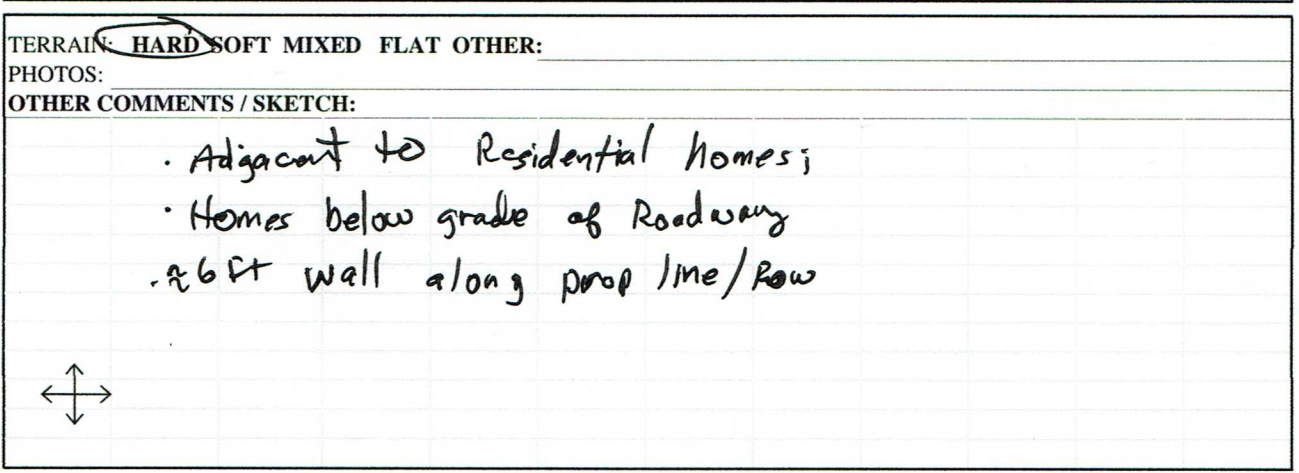 TERRAIN: HARD SOFT MIXED FLAT OTHER:
PHOTOS:
OTHER COMMENTS / SKETCH:
· Adjacent to Residential homes;
· Homes below grade of Roadway
· ≈6 ft wall along prop line/Row